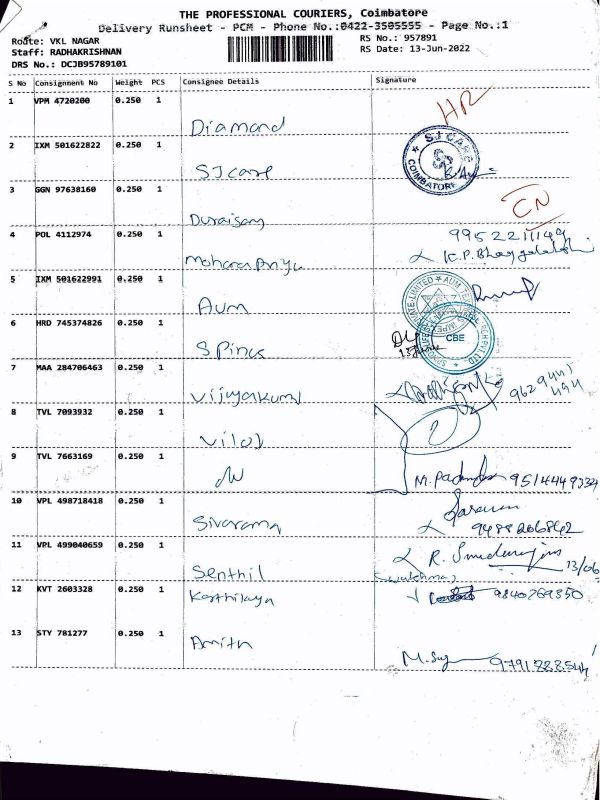 THE PROFESSIONAL COURIERS, Coimbatore
Delivery Runsheet - PCM - Phone No.:0422-3505555 - Page No.:1
Route: VKL NAGAR
RS No.: 957891
Staff: RADHAKRISHNAN
RS Date: 13-Jun-2022
DRS No.: DCJB95789101
S No Consignment No Weight PCS Consignee Details Signature
1 VPM 4720200 0.250 1 Diamond HR
2 IXM 501622822 0.250 1 SJ care SJ CARE COIMBATORE
3 GGN 97638160 0.250 1 Duraisamy CN
4 POL 4112974 0.250 1 9952211149
K.P.
5 IXM 501622991 0.250 1 Aum
6 HRD 745374826 0.250 1 CBE
7 MAA 284706463 0.250 1 Vijayakumar 9629441
494
8 TVL 7093932 0.250 1
9 TVL 7663169 0.250 1 M. 9514449334
10 VPL 498718418 0.250 1 Sivarama
9488206842
11 VPL 499040659 0.250 1 Senthil R. 13/06
12 KVT 2603328 0.250 1 9840769850
13 STY 781277 0.250 1 Amith